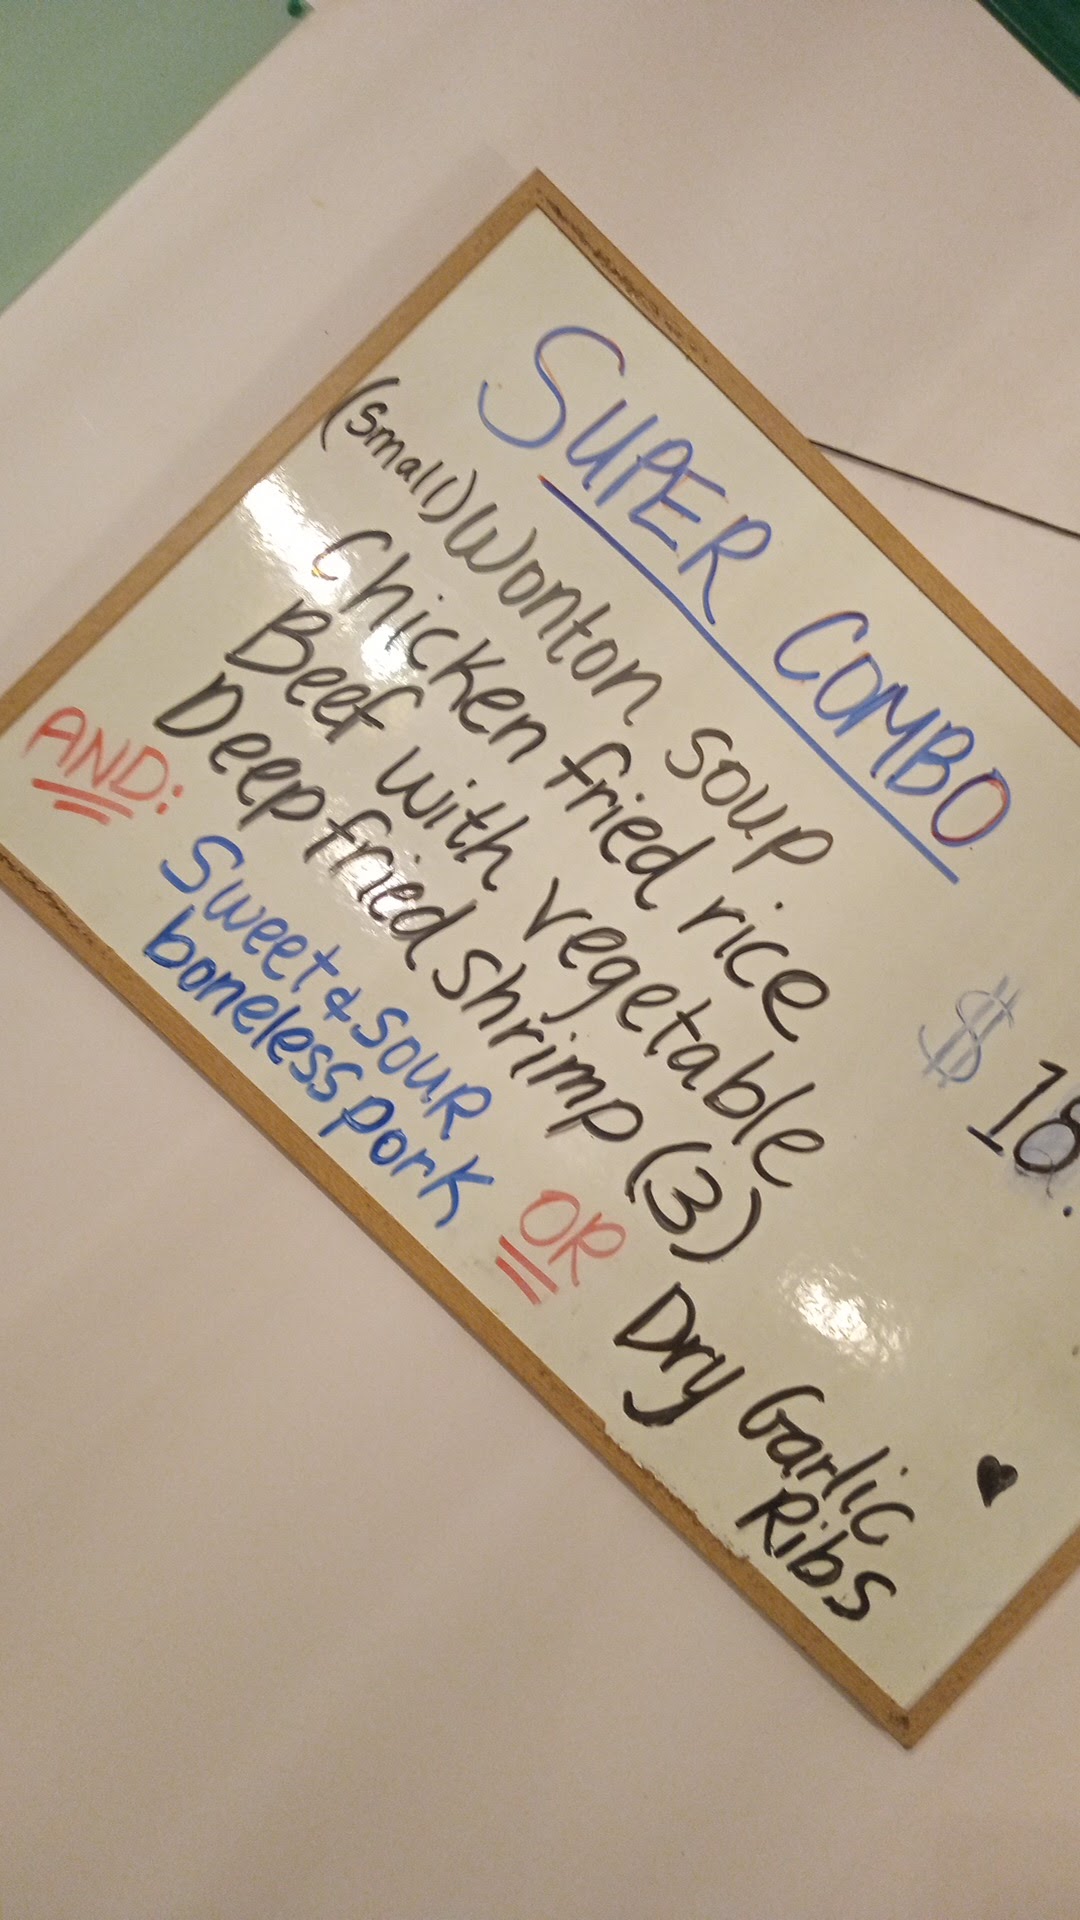 SUPER COMBO
(Small) Wonton soup
Chicken fried rice
Beef with vegetable
Deep fried shrimp (3)
$ 18.
AND:
Sweet & SOUR
boneless pork
OR
Dry Garlic
Ribs